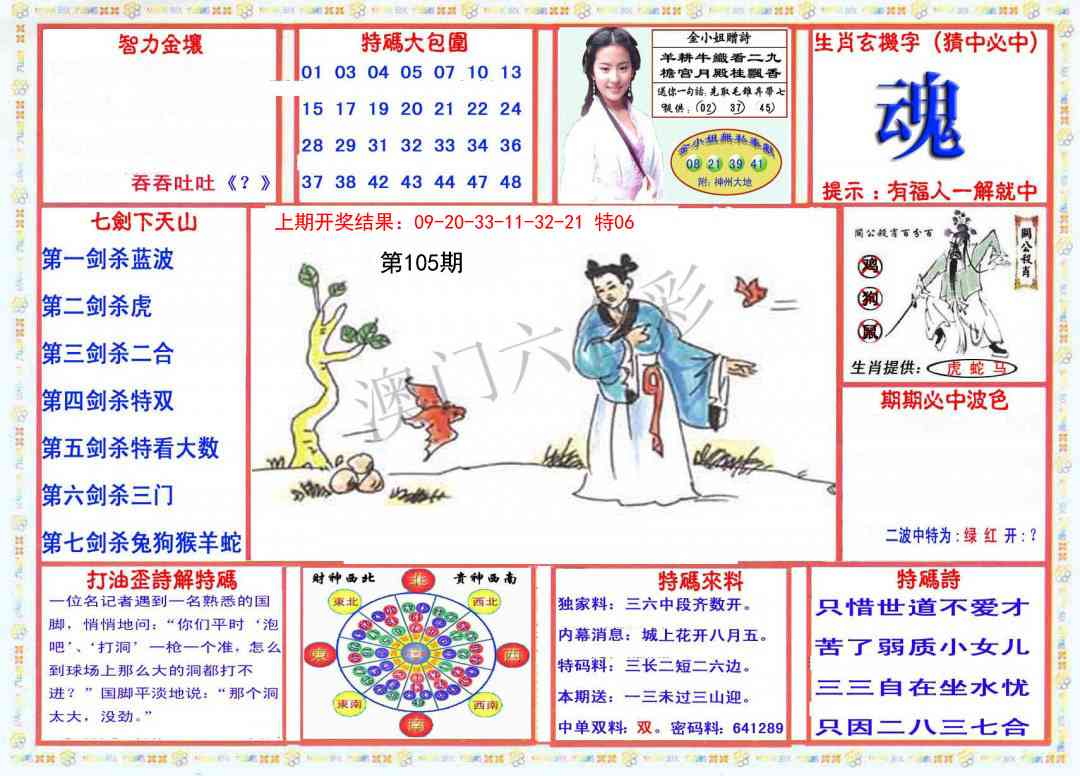 智力金壤
吞吞吐吐《？》
特碼大包圍
01 03 04 05 07 10 13
15 17 19 20 21 22 24
28 29 31 32 33 34 36
37 38 42 43 44 47 48
金小姐贈詩
羊耕牛織看二九
檐宫月殿桂飄香
送你一句話:先取毛雞弄帶七
提供:(02) 37) 45)
金小姐無私奉獻
08 21 39 41
附:神州大地
生肖玄機字（猜中必中）
魂
提示：有福人一解就中
七劍下天山
第一剑杀蓝波
第二剑杀虎
第三剑杀二合
第四剑杀特双
第五剑杀特看大数
第六剑杀三门
第七剑杀兔狗猴羊蛇
上期开奖结果：09-20-33-11-32-21 特06
第105期
澳门六 彩
關公殺肖百分百
關公殺肖
鸡
狗
鼠
生肖提供：虎 蛇 马
期期必中波色
二波中特为：绿 红 开：？
打油歪詩解特碼
一位名记者遇到一名熟悉的国
脚，悄悄地问：“你们平时‘泡
吧’、‘打洞’一枪一个准，怎么
到球场上那么大的洞都打不
进？”国脚平淡地说：“那个洞
太大，没劲。”
财神西北
贵神西南
北
東北
西北
東
西
東南
西南
南
特碼來料
独家料：三六中段齐数开。
内幕消息：城上花开八月五。
特码料：三长二短二六边。
本期送：一三未过三山迎。
中单双料：双。密码料：641289
特碼詩
只惜世道不爱才
苦了弱质小女儿
三三自在坐水忧
只因二八三七合